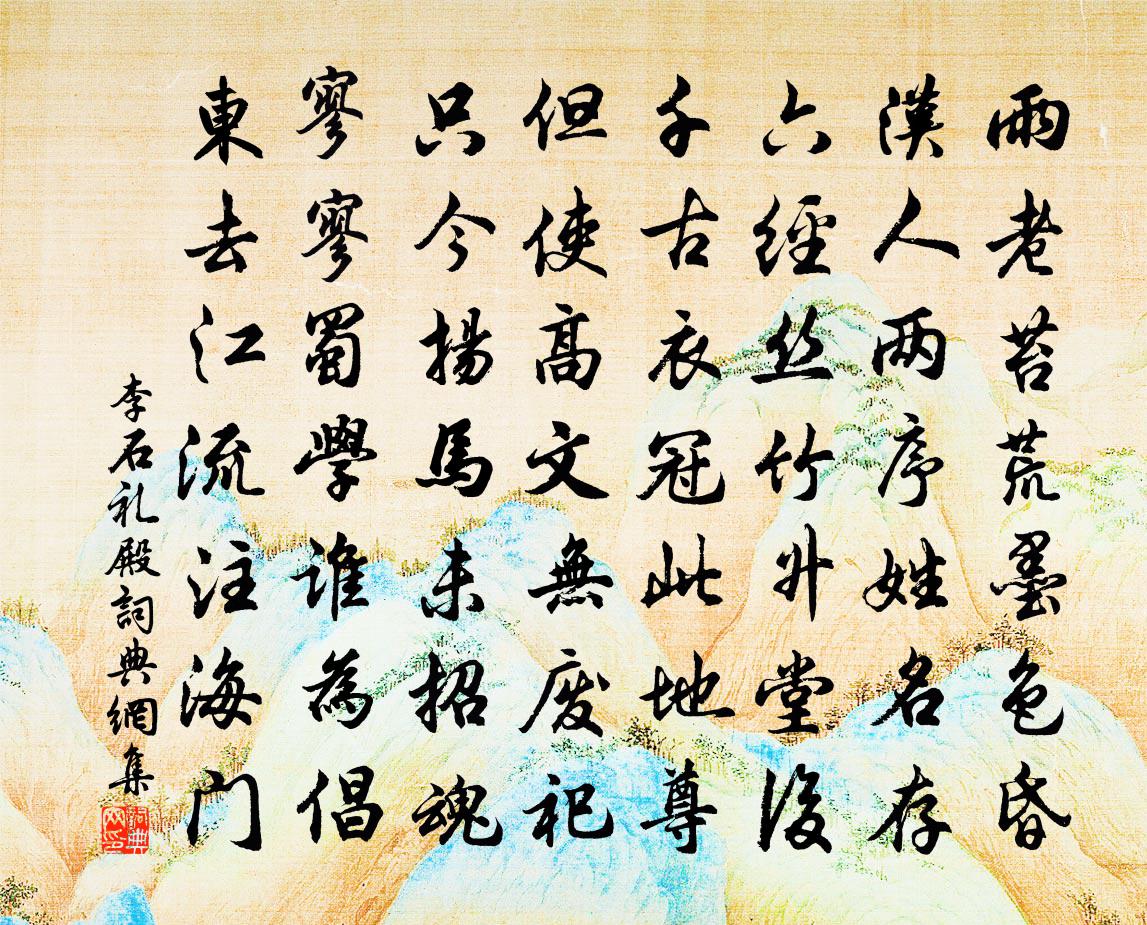 雨老苔荒墨色昏
漢人兩序姓名存
六經絲竹升堂後
千古衣冠此地尊
但使高文無廢祀
只今揚馬未招魂
寥寥蜀學誰為倡
東去江流注海門
李石礼殿詞典網集
詞典網印